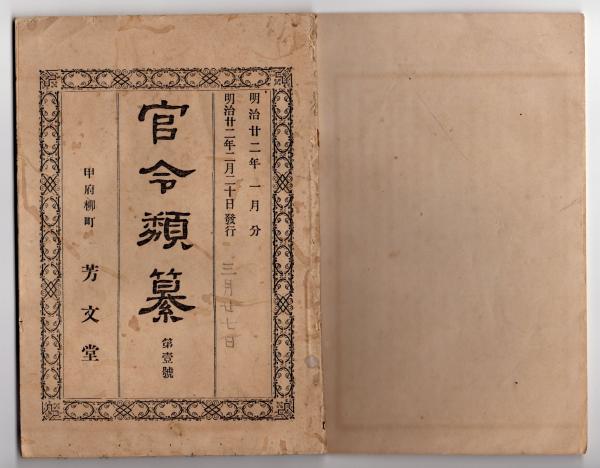 明治廿二年一月分
明治廿二年二月二十日發行
三月廿七日
官令類纂
第壹號
甲府柳町 芳文堂